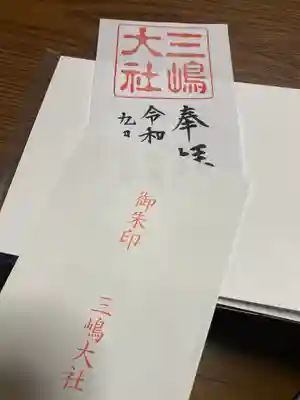 三嶋
大社
奉拝
令和
九日
御朱印
三嶋大社